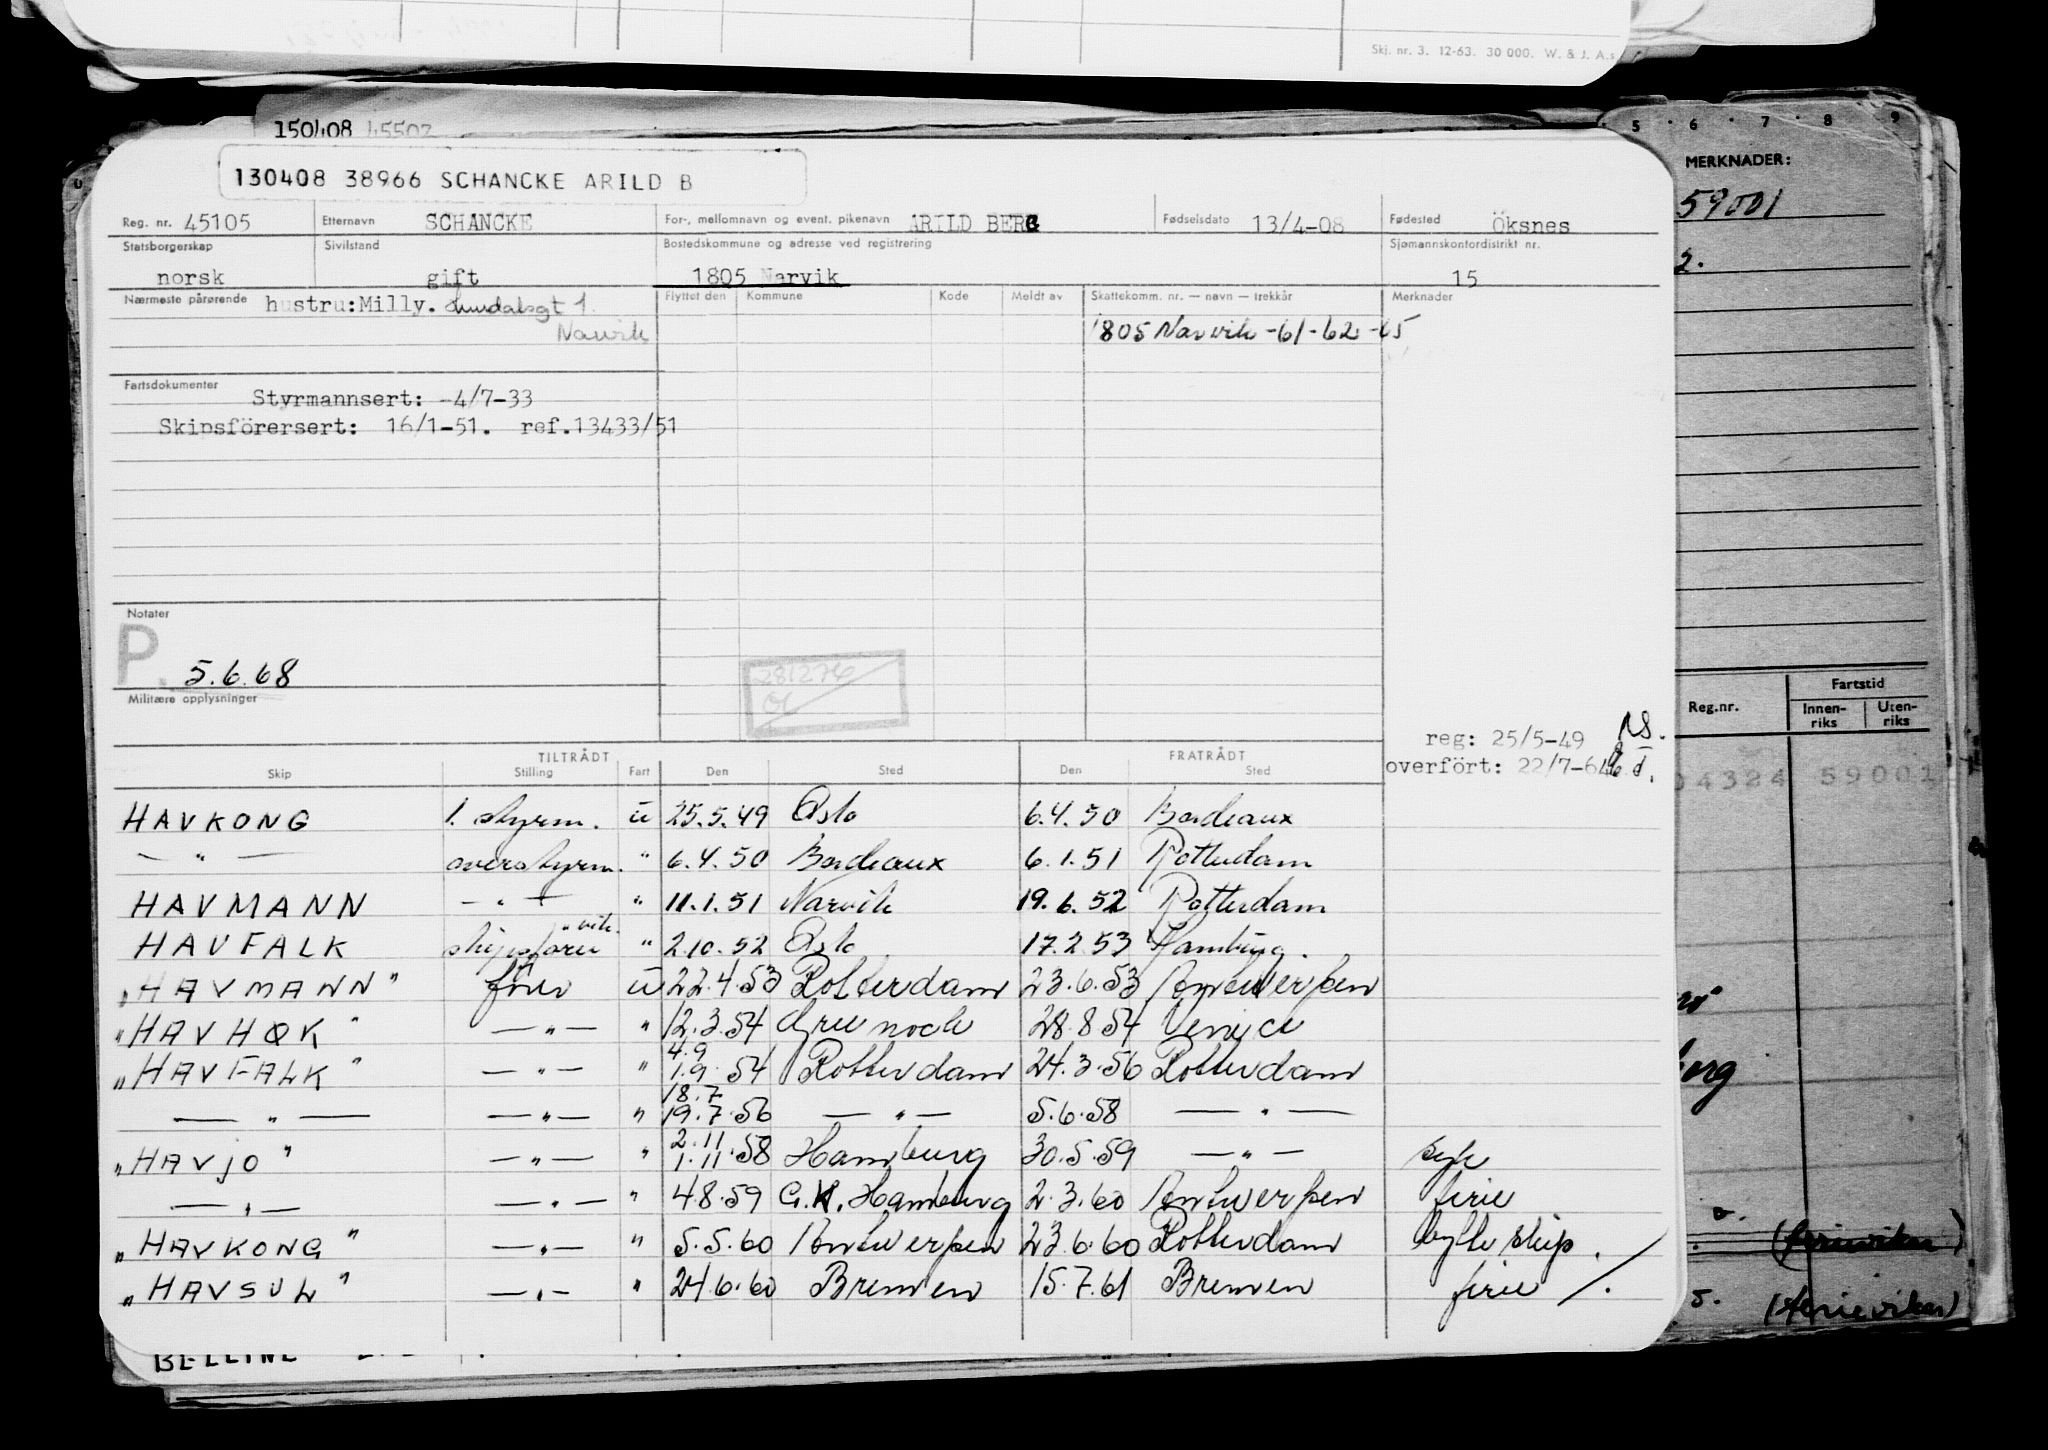 Skj. nr. 3. 12-63. 30 000. W. & J. A.s
150408 45502
5 6 7 8 9
MERKNADER:
59001
2.
130408 38966 SCHANCKE ARILD B
Reg. nr. 45105 Etternavn SCHANCKE For-, mellomnavn og event. pikenavn ARILD BERG Fødselsdato 13/4-08 Fødested Öksnes
Statsborgerskap norsk Sivilstand gift Bostedskommune og adresse ved registrering 1805 Narvik Sjømannskontordistrikt nr. 15
Nærmeste pårørende hustru:Milly. 1. Flyttet den Kommune Kode Meldt av Skattekomm. nr. — navn — trekkår Merknader
Narvik 1805 Narvik -61-62-65
Fartsdokumenter
Styrmannsert: -4/7-33
Skipsförersert: 16/1-51. ref.13433/51
Notater
P. 5.6.68
281276
Militære opplysninger
Reg.nr. Fartstid
Innen-riks Uten-riks
reg: 25/5-49
overfört: 22/7-64
04324 59001
TILTRÅDT FRATRÅDT
Skip Stilling Fart Den Sted Den Sted
HAVKONG 1. styrm. u 25.5.49 Oslo 6.4.50 Bordeaux
— " — overstyrm. " 6.4.50 Bordeaux 6.1.51 Rotterdam
HAVMANN — " — " 11.1.51 Narvik 19.6.52 Rotterdam
HAVFALK skipsfører vik. " 2.10.52 Oslo 17.2.53 Hamburg.
"HAVMANN" fører u 22.4.53 Rotterdam 23.6.53 Antwerpen
"HAVHØK" — " — " 12.3.54 Greenock 28.8.54 Venice
"HAVFALK" — " — " 4.9 1.9.54 Rotterdam 24.3.56 Rotterdam
— " — — " — " 18.7 19.7.56 — " — 5.6.58 — " —
"HAVJO" — " — " 2.11 1.11.58 Hamburg 30.5.59 — " — syk
— " — — " — " 4.8.59 G.K. Hamburg 2.3.60 Antwerpen ferie
"HAVKONG" — " — " 5.5.60 Antwerpen 23.6.60 Rotterdam bytte skip.
"HAVSUL" — " — " 24.6.60 Bremen 15.7.61 Bremen ferie
(ferievikar)
(ferievikar)